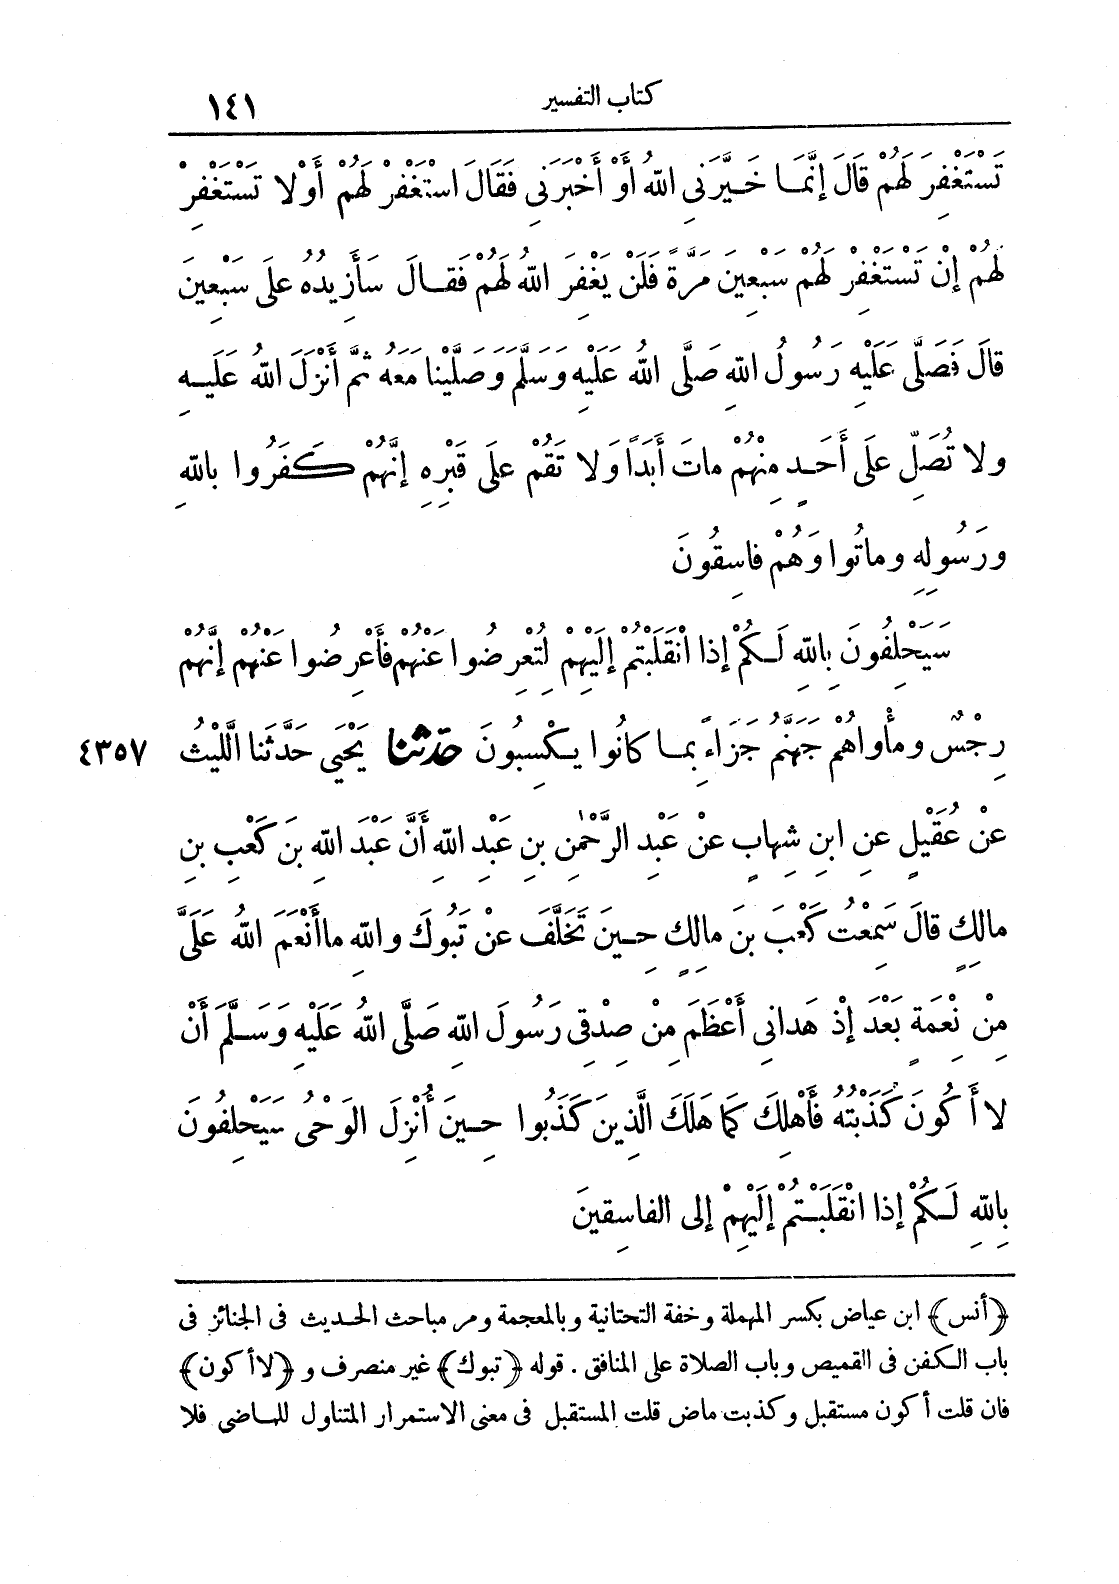 كتاب التفسير ١٤١
تَسْتَغْفِرَ لَهُمْ قَالَ إِنَّمَا خَيَّرَنِى اللهُ أَوْ أَخْبَرَنِى فَقَالَ اسْتَغْفِرْ لَهُمْ أَوْ لا تَسْتَغْفِرْ
لَهُمْ إِنْ تَسْتَغْفِرْ لَهُمْ سَبْعِينَ مَرَّةً فَلَنْ يَغْفِرَ اللهُ لَهُمْ فَقَالَ سَأَزِيدُهُ عَلَى سَبْعِينَ
قَالَ فَصَلَّى عَلَيْهِ رَسُولُ اللهِ صَلَّى اللهُ عَلَيْهِ وَسَلَّمَ وَصَلَّيْنا مَعَهُ ثُمَّ أَنْزَلَ اللهُ عَلَيهِ
ولا تُصَلِّ عَلَى أَحَدٍ مِنْهُمْ ماتَ أَبَدًا وَلا تَقُمْ عَلَى قَبْرِهِ إِنَّهُمْ كَفَرُوا بِاللهِ
ورَسُولِهِ وماتُوا وَهُمْ فاسِقُونَ
سَيَحْلِفُونَ بِاللهِ لَكُمْ إِذا انْقَلَبْتُمْ إِلَيْهِمْ لِتُعْرِضُوا عَنْهُمْ فَأَعْرِضُوا عَنْهُمْ إِنَّهُمْ
رِجْسٌ ومأْواهُمْ جَهَنَّمُ جَزَاءً بِمَا كانُوا يَكْسِبُونَ حَدَّثَنا يَحْيَى حَدَّثَنا اللَّيْثُ ٤٣٥٧
عَنْ عُقَيْلٍ عَنِ ابنِ شِهابٍ عَنْ عَبْدِ الرَّحْمٰنِ بنِ عَبْدِ اللهِ أَنَّ عَبْدَ اللهِ بنَ كَعْبِ بنِ
مالِكٍ قالَ سَمِعْتُ كَعْبَ بنَ مالِكٍ حِينَ تَخَلَّفَ عَنْ تَبُوكَ واللهِ ما أَنْعَمَ اللهُ عَلَىَّ
مِنْ نِعْمَةٍ بَعْدَ إِذْ هَدانِى أَعْظَمَ مِنْ صِدْقِى رَسُولَ اللهِ صَلَّى اللهُ عَلَيْهِ وَسَلَّمَ أَنْ
لا أَكُونَ كَذَبْتُهُ فَأَهْلِكَ كَمَا هَلَكَ الَّذِينَ كَذَبُوا حِينَ أُنْزِلَ الوَحْىُ سَيَحْلِفُونَ
بِاللهِ لَكُمْ إِذا انْقَلَبْتُمْ إِلَيْهِمْ إلى الفاسِقِينَ
﴿أنس﴾ ابن عياض بكسر المهملة وخفة التحتانية وبالمعجمة ومر مباحث الحديث فى الجنائز فى
باب الكفن فى القميص وباب الصلاة على المنافق . قوله ﴿تبوك﴾ غير منصرف و ﴿لا أكون﴾
فان قلت أكون مستقبل وكذبت ماض قلت المستقبل فى معنى الاستمرار المتناول للماضى فلا